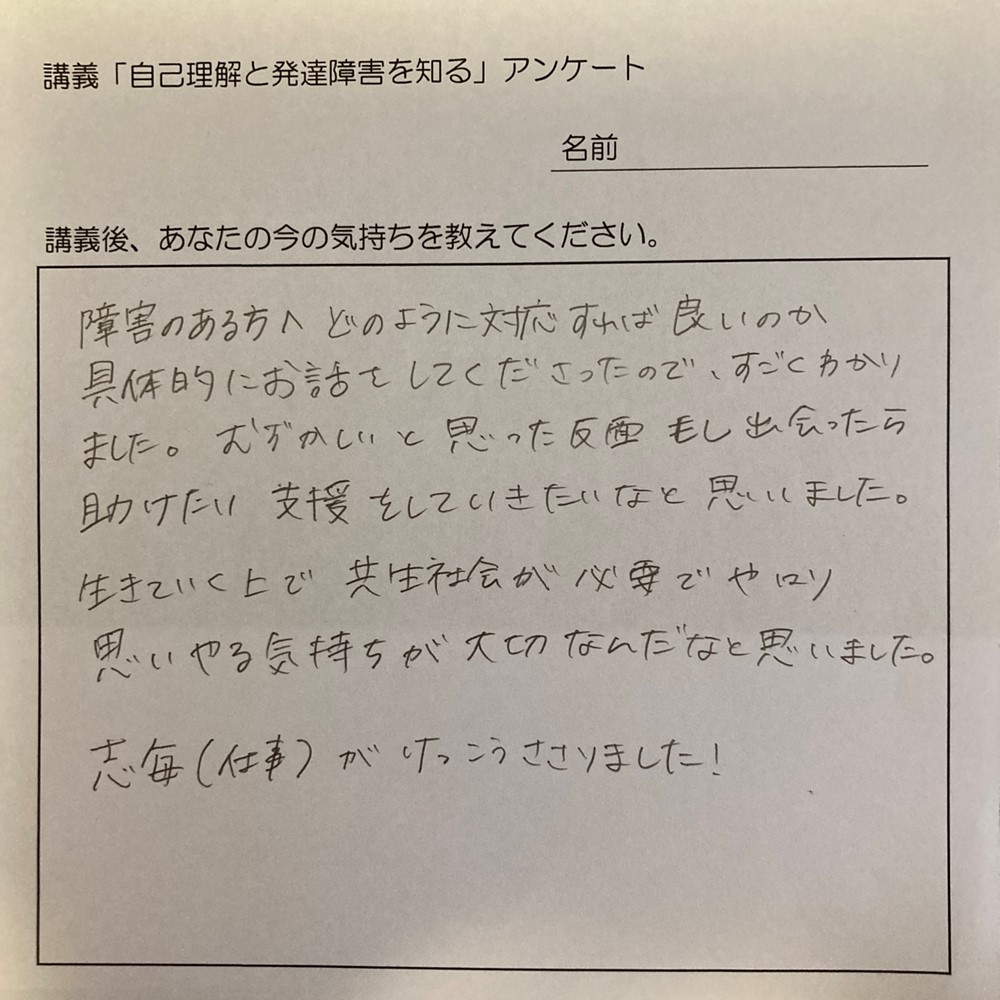 講義「自己理解と発達障害を知る」アンケート
名前
講義後、あなたの今の気持ちを教えてください。
障害のある方へ どのように対応すれば良いのか
具体的にお話をしてくださったので、すごくわかり
ました。むずかしいと思った反面 もし出会ったら
助けたい 支援をしていきたいなと思いました。
生きていく上で 共生社会が必要でやはり
思いやる気持ちが大切なんだなと思いました。
志毎(仕事)がけっこうささりました!